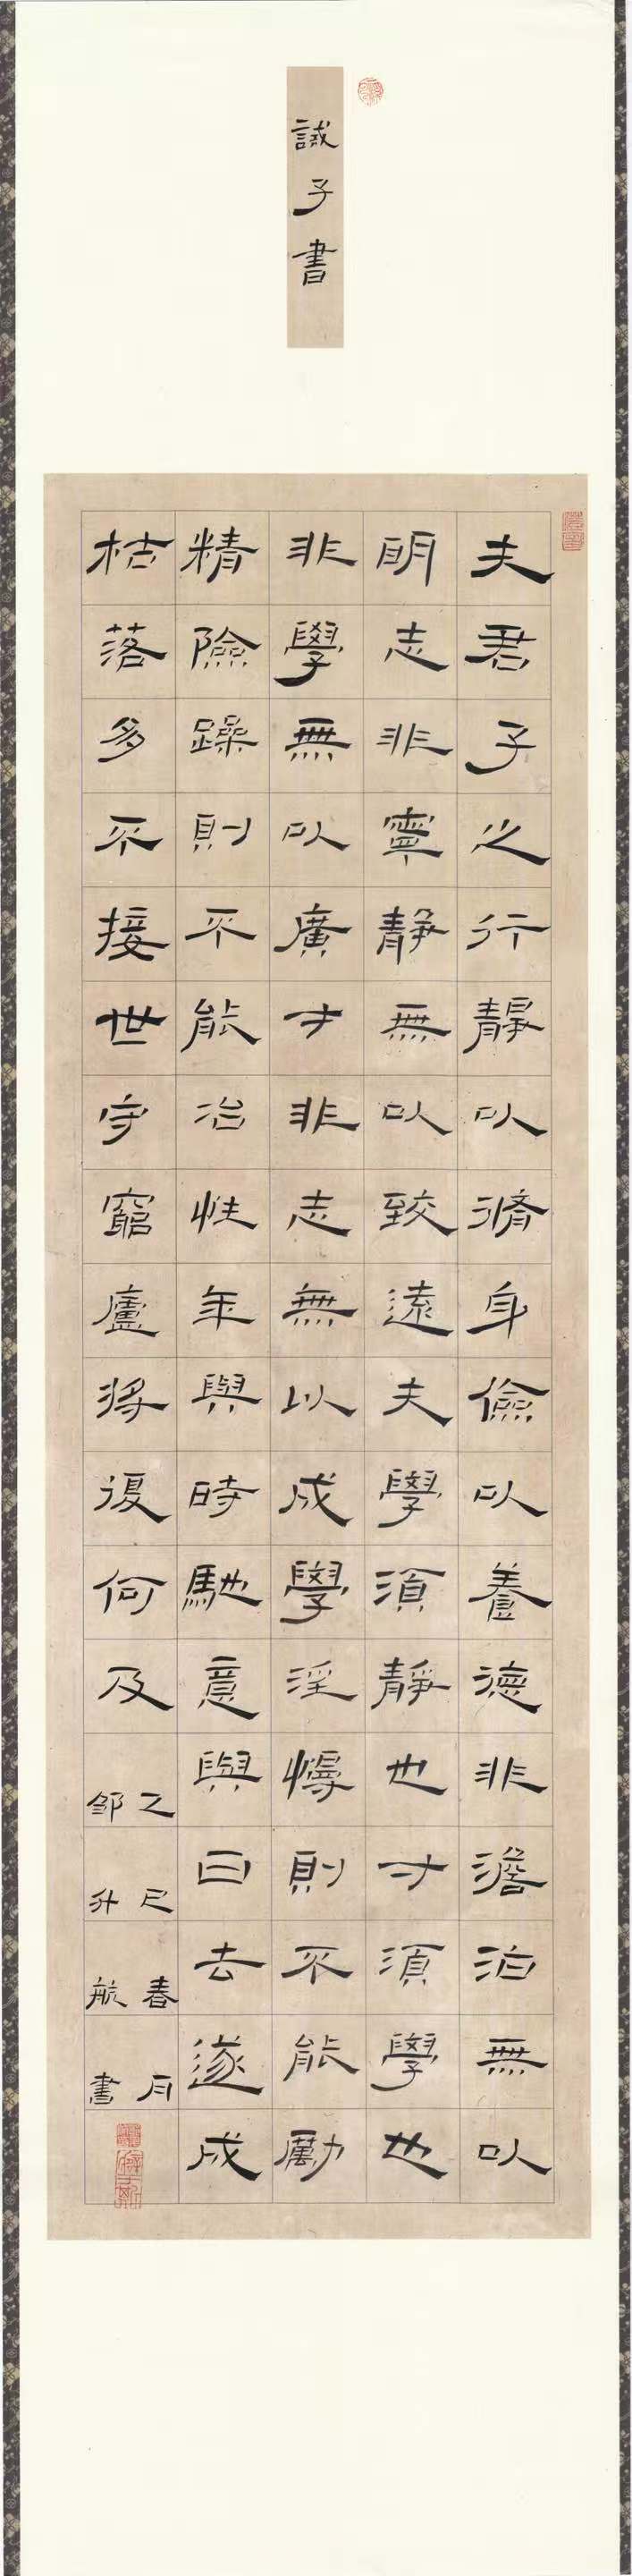 誡子書
夫君子之行靜以脩身儉以養德非澹泊無以
明志非寧靜無以致遠夫學須靜也才須學也
非學無以廣才非志無以成學淫慢則不能勵
精險躁則不能冶性年與時馳意與日去遂成
枯落多不接世守窮廬將復何及
乙巳春月
邹升航書